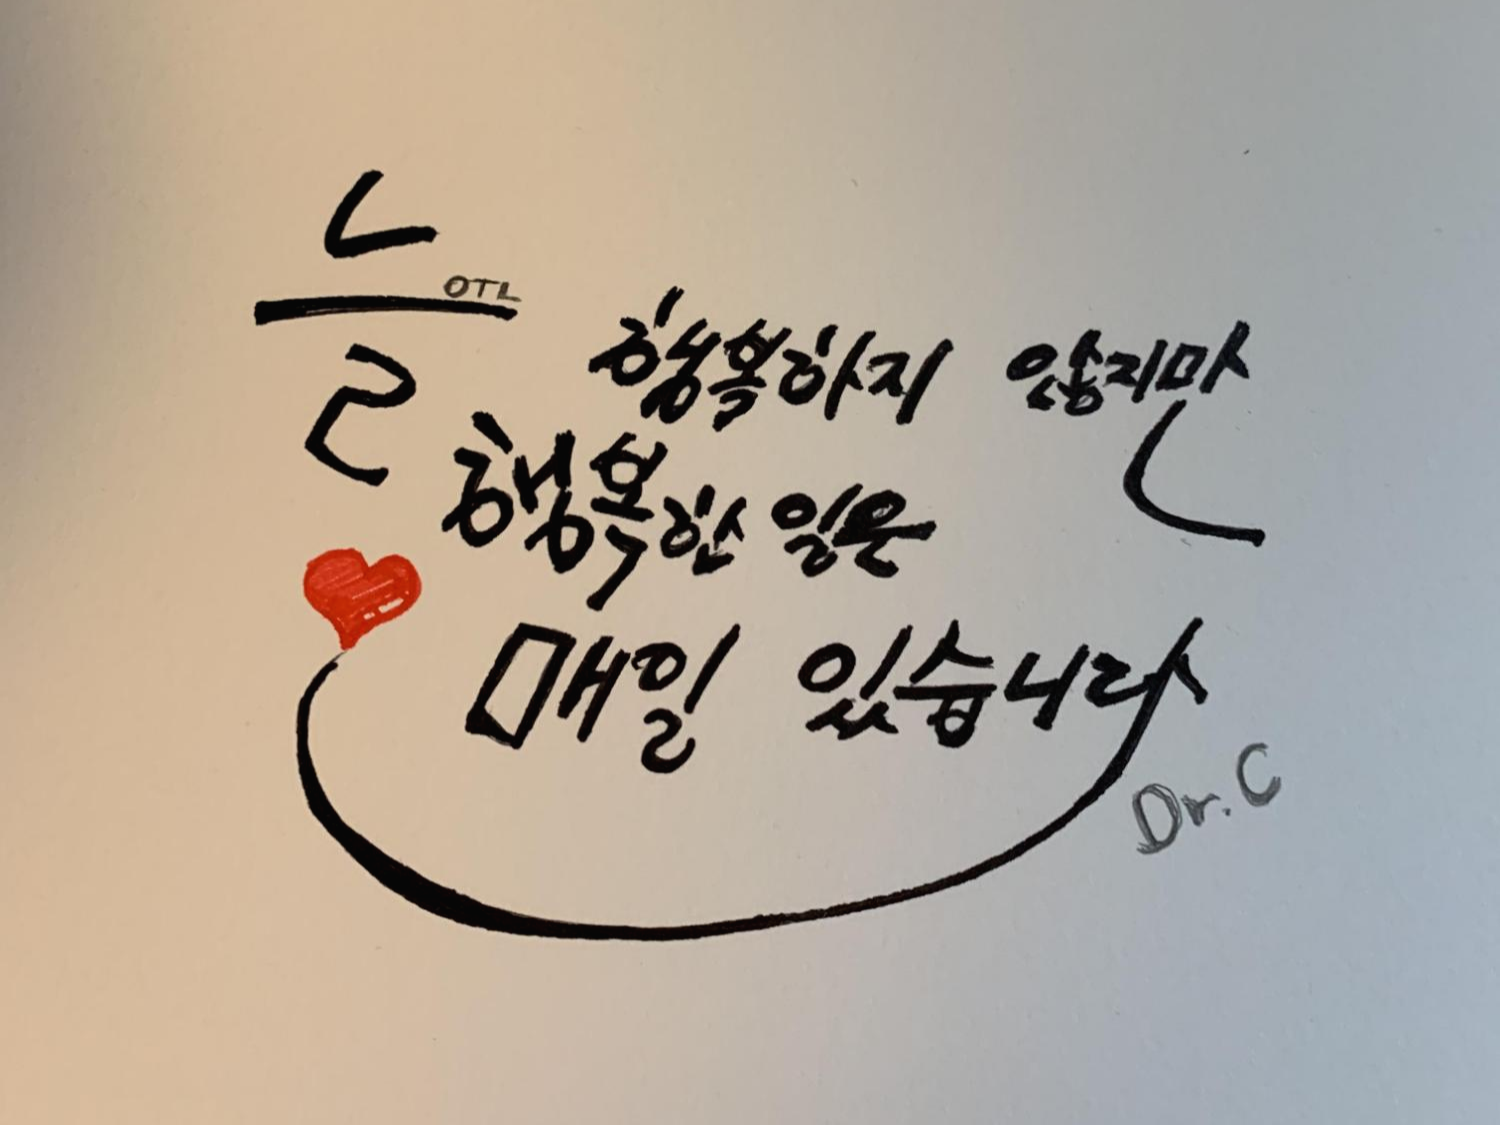 늘 행복하지 않지만
OTL
행복한 일은
매일 있습니다
Dr. C